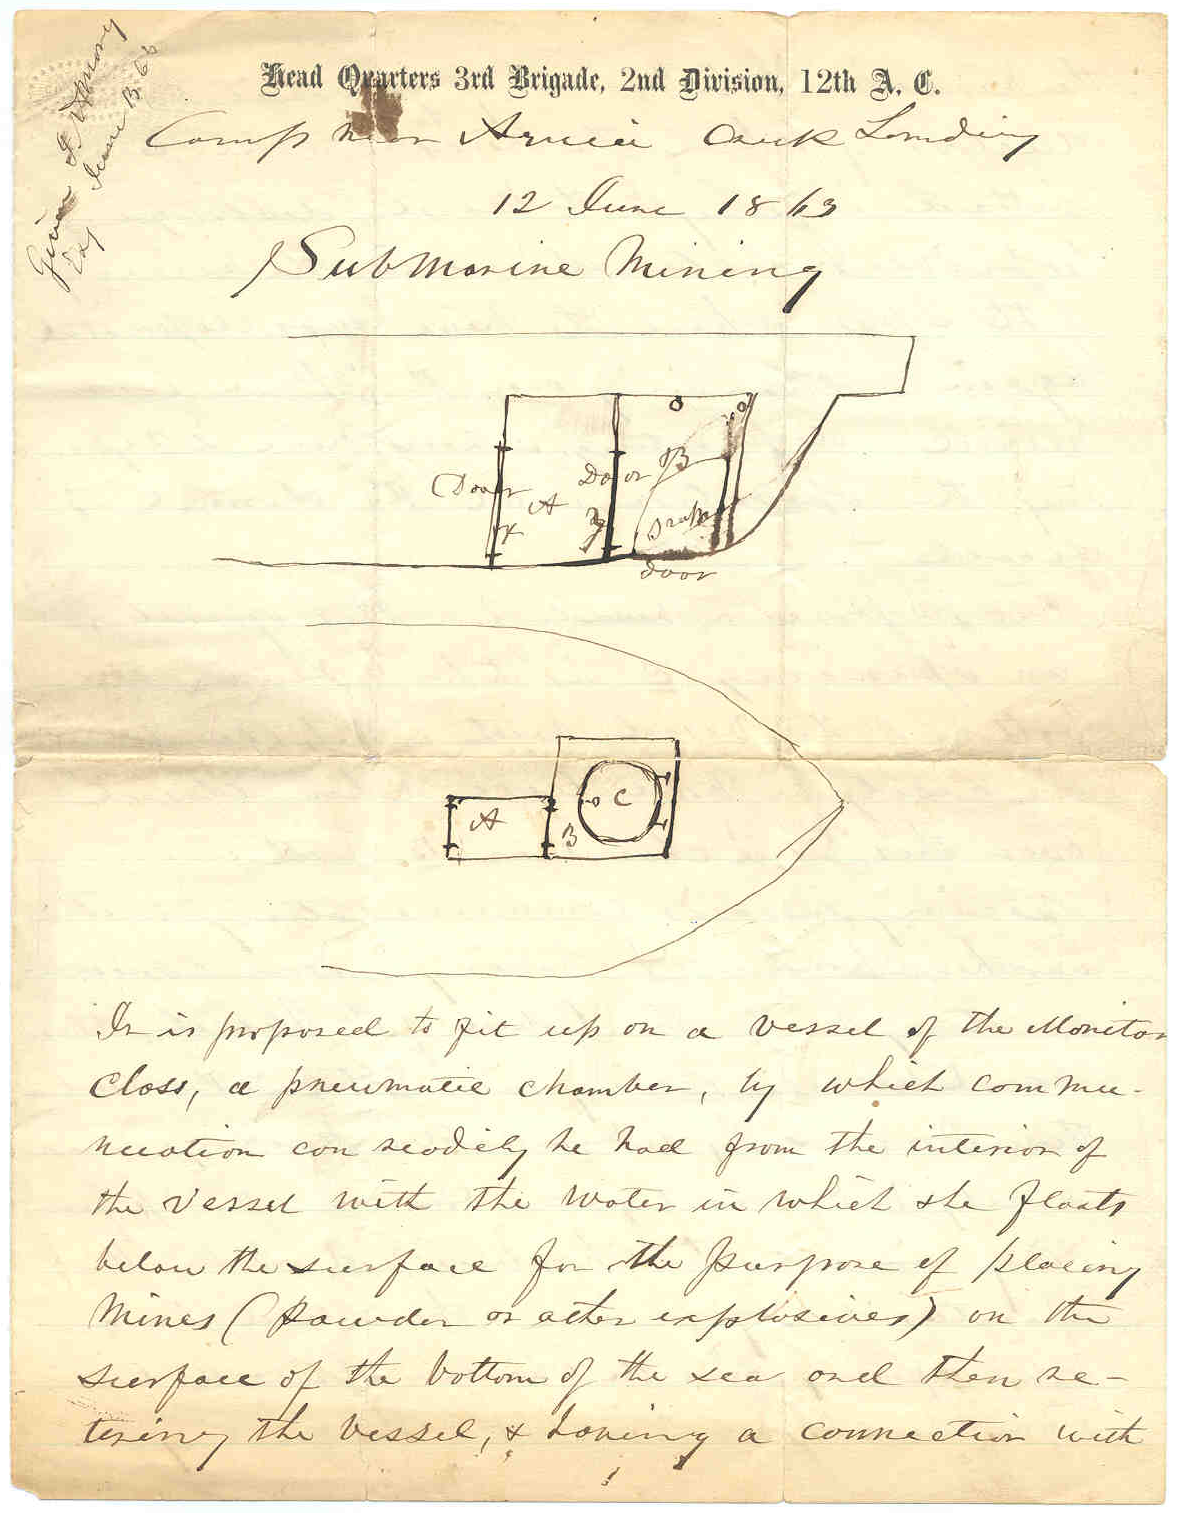 Head Quarters 3rd Brigade, 2nd Division, 12th A. C.
Camp near Acquia Creek Landing
12 June 1863
Submarine Mining
Given
June 13. 63
Door
A
x
Door
B
y
door
A
B
C
It is proposed to fit up on a vessel of the Monitor
Class, a pneumatic chamber, by which commu-
nication can readily be had from the interior of
the vessel with the water in which she floats
below the surface for the purpose of placing
Mines (Powder or other explosives) on the
surface of the bottom of the sea and then re-
tiring the vessel, & having a connection with